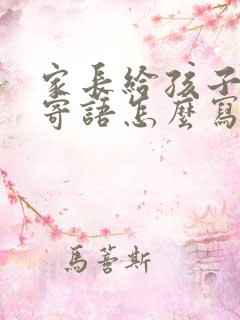 家長給孩子
寄語怎麼寫
馬蒈斯